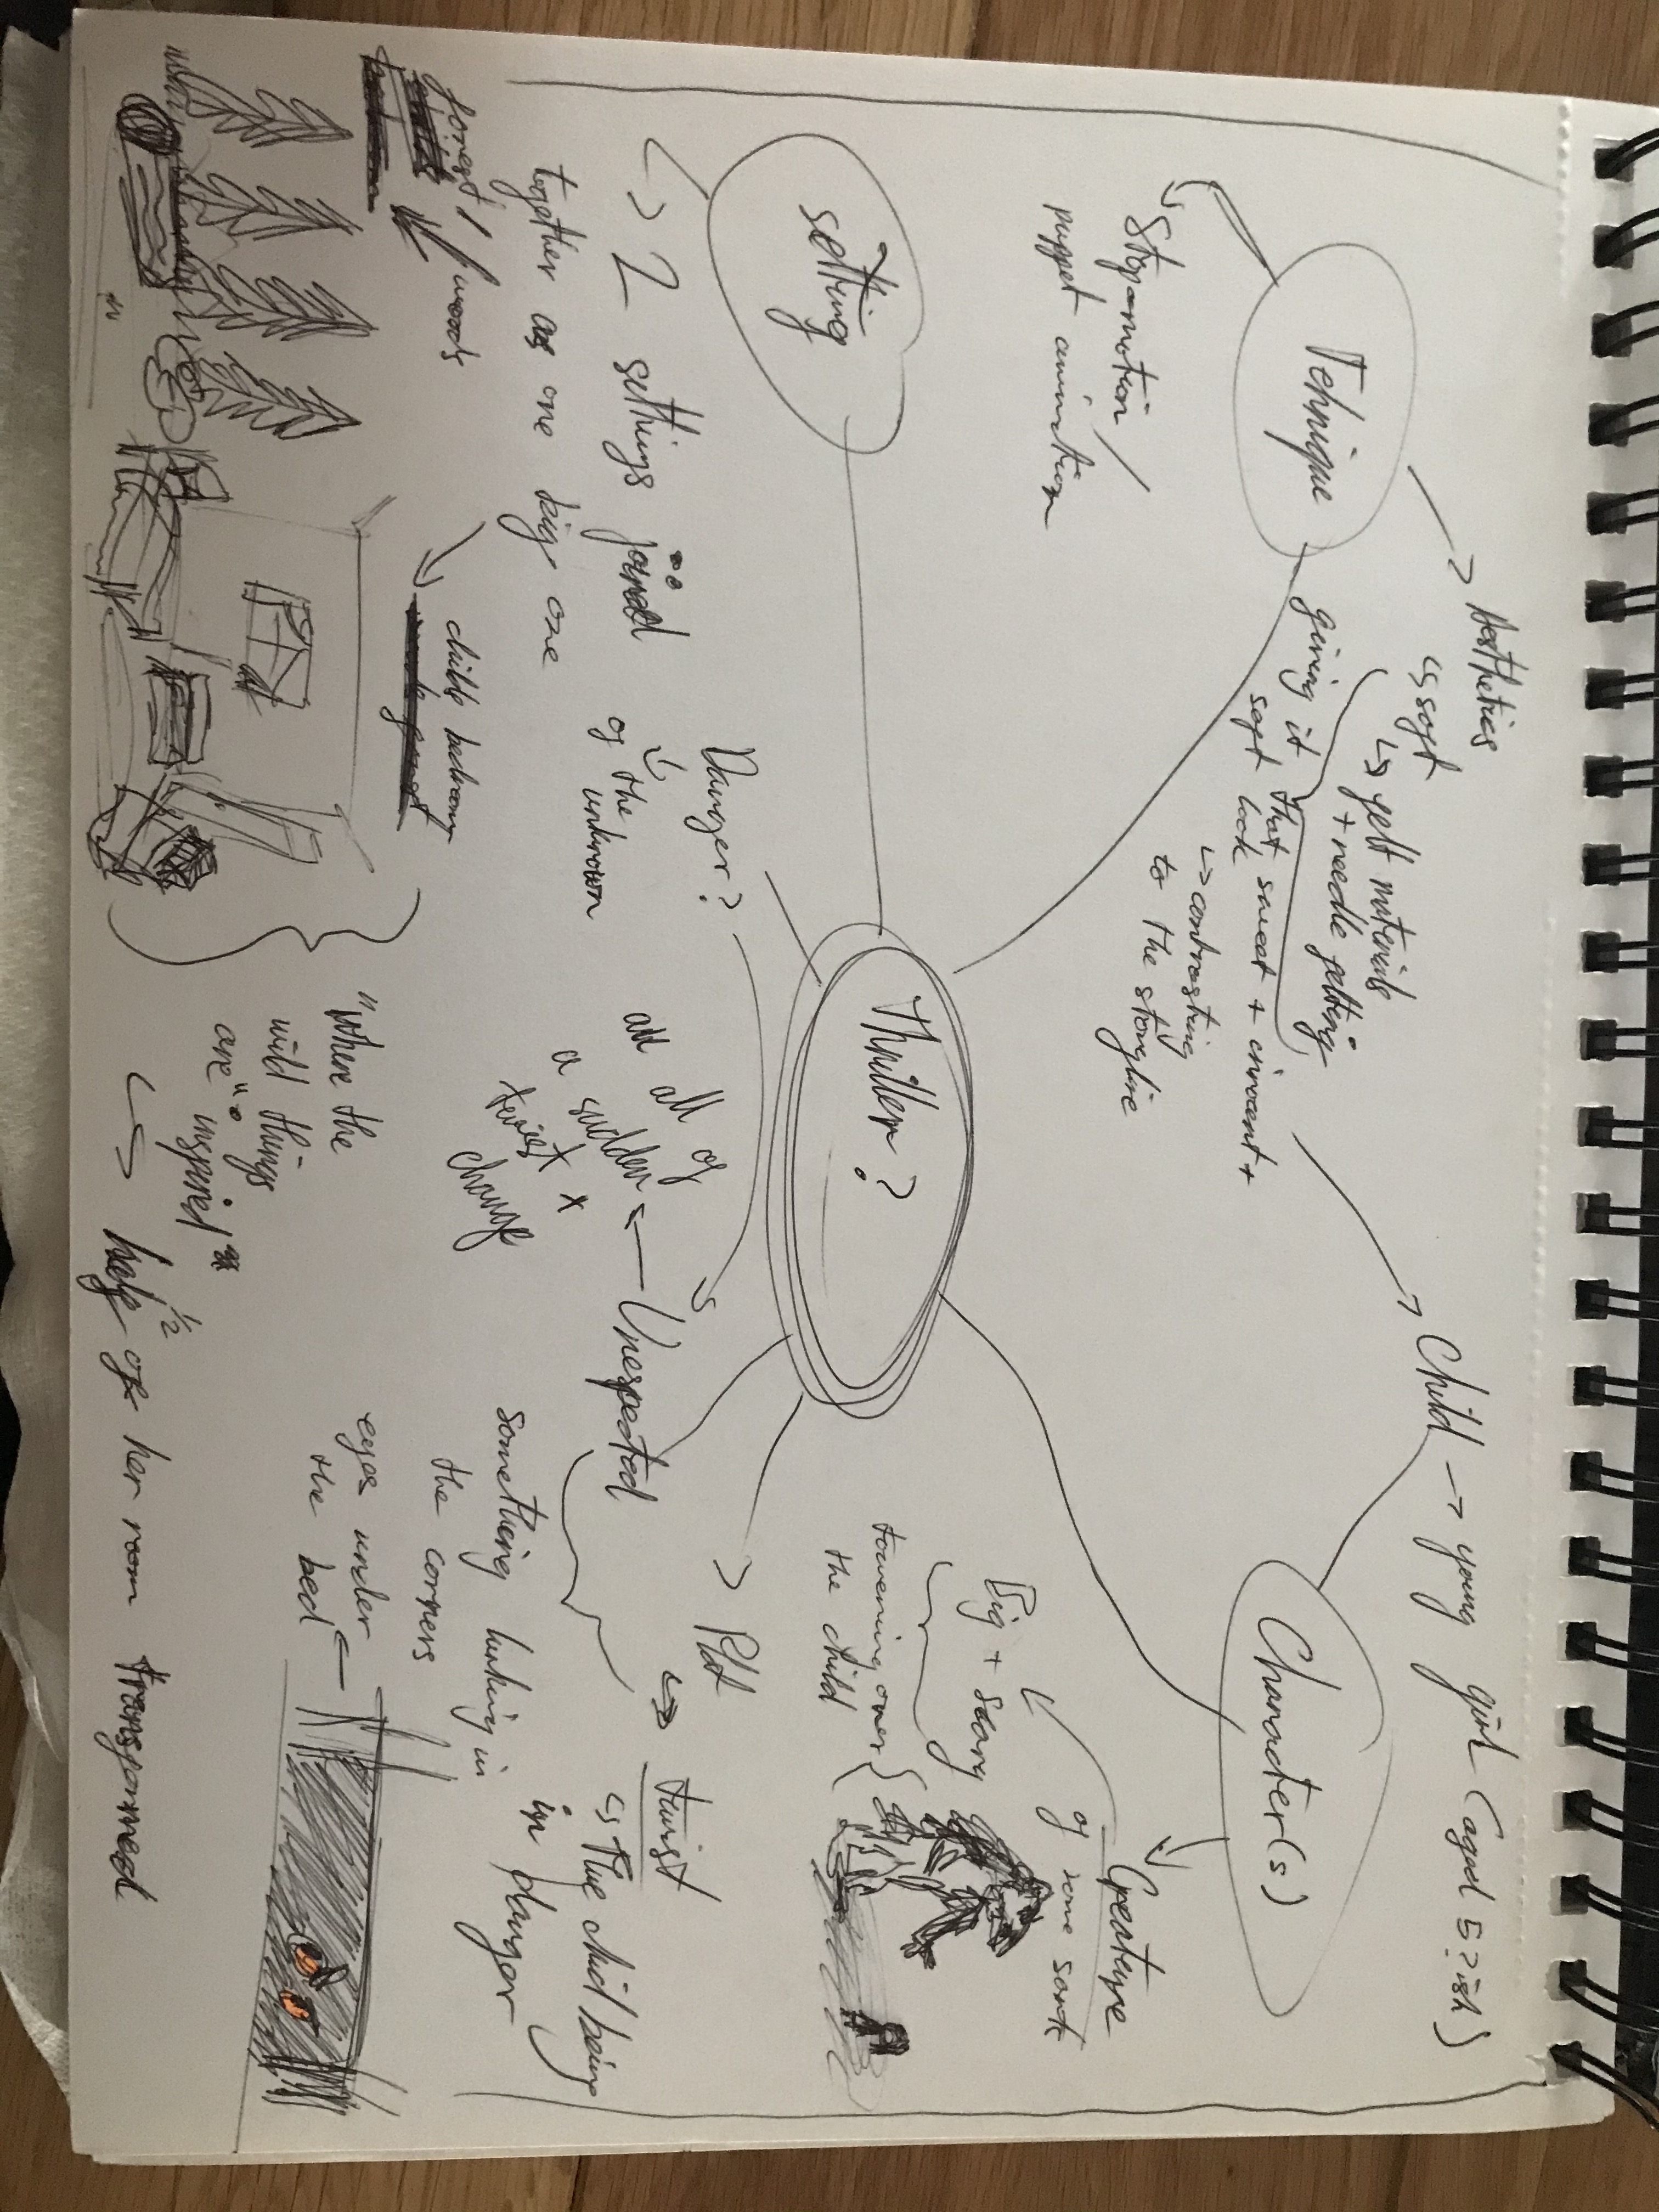 Tehnique
↳ Stop-motion /
puppet animation
→ Aesthetics
↳ soft
↳ felt materials
+ needle felting
giving it that sweet + innocent +
soft look
↳ contrasting
to the storyline
Character(s)
Child → young girl (aged 5?ish)
Creature
of some sort
Big + scary
towering over
the child
Thriller?
setting
↳ 2 settings joined
together as one big one
forest / woods
childs bedroom
"Where the
wild things
are" inspired
↳ 1/2
half of her room transformed
Danger?
↳ of the
unknown
Unexpected
all of
a sudden
twist x
change
something lurking in
the corners
eyes under
the bed
> Plot
↳ twist
↳ The child being
in danger